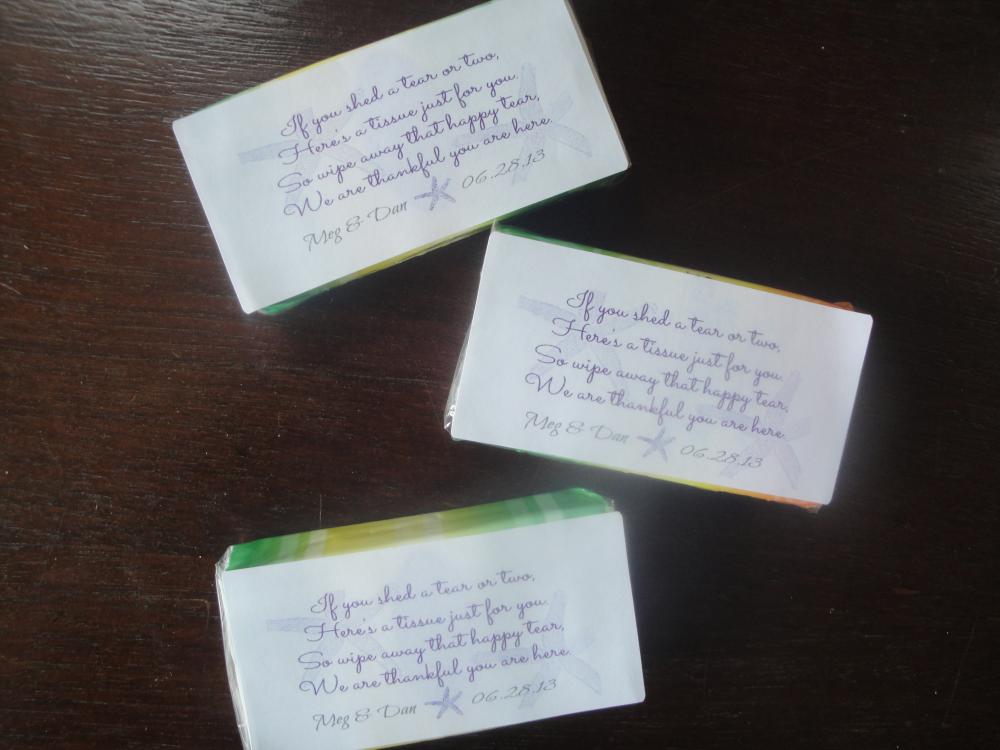 If you shed a tear or two,
Here's a tissue just for you.
So wipe away that happy tear,
We are thankful you are here.
Meg & Dan 06.28.13
If you shed a tear or two,
Here's a tissue just for you.
So wipe away that happy tear,
We are thankful you are here.
Meg & Dan 06.28.13
If you shed a tear or two,
Here's a tissue just for you.
So wipe away that happy tear,
We are thankful you are here.
Meg & Dan 06.28.13